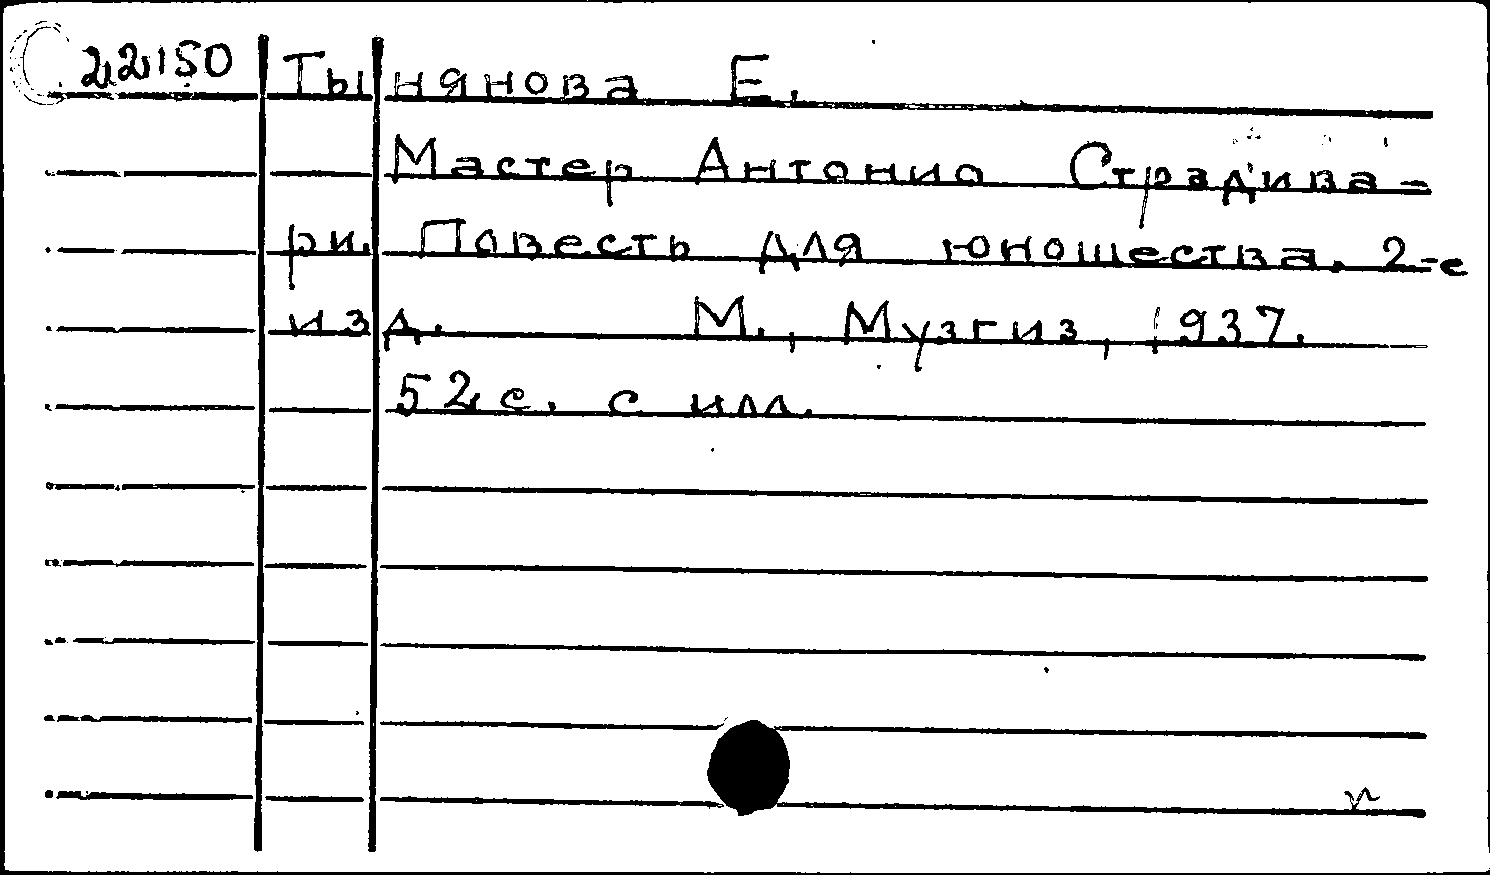 22150 Тынянова Е.
Мастер Антонио Страдива-
ри. Повесть для юношества. 2-е
изд. М., Музгиз, 1937.
52 с. с илл.